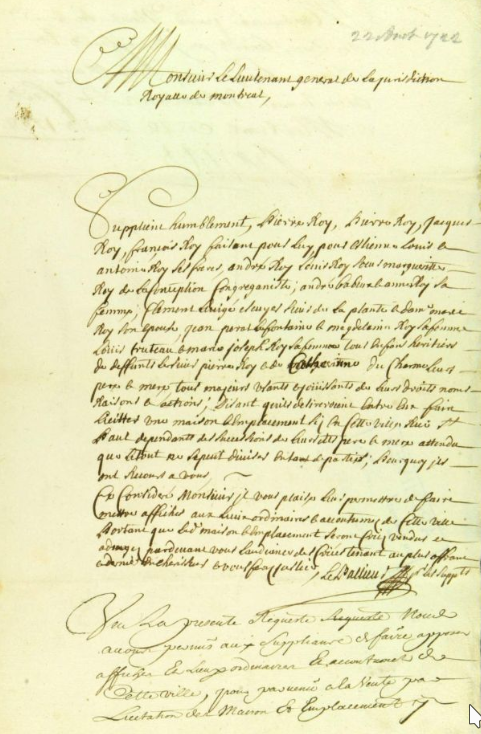 22 Aout 1722
A Monsieur Le Lieutenant general de La jurisdiction
Royalle de montreal,
Supplient humblement, Pierre Roy, Pierre Roy, Jacques
Roy, françois Roy faisant pour Luy, pour Estienne Louis &
antoine Roy ses freres, andre Roy Louis Roy soeur marguerite
Roy de La Conception Congreganiste; andre babeu & anne Roy sa
femme; Clement Lerigé escuyer sieur de La plante & dame marie
Roy son Epouse, jean poirat Lafontaine & magdelaine Roy sa femme
Louis truteau & marie joseph Roy sa femme tous Enfans heritiers
de deffunts Le sieur pierre Roy & de Catherine du Charme Leurs
pere & mere tous majeurs usants & jouissants de Leurs droits noms
Raisons & actions; Disant quils desireroient Entre Eux faire
Liciter une maison & Emplacement sis En Cette ville Rue St
Paul dependants des successions de Leurs dits pere & mere attendu
que Le tout ne se peut diviser En tant de parties, pourquoy ils
ont Recours a vous
Ce Consideré Monsieur, jl vous plaise Leur permettre de faire
mettre affiches aux Lieux ordinaires & acoutumés de Cette ville
Portant que Lad. maison & Emplacement seront vendus et
adjugés pardevant vous Laudience tenant au plus offrant
& dernier Encherisseur & vous ferez justice,
Veu La presente Requeste Nous
avons permis aux Supplians de faire apposer
affiches Es Lieux ordinaires Et accoutumés de
Cette ville, pour parvenir a la Vente par
Licitation des Maison Et Emplacement